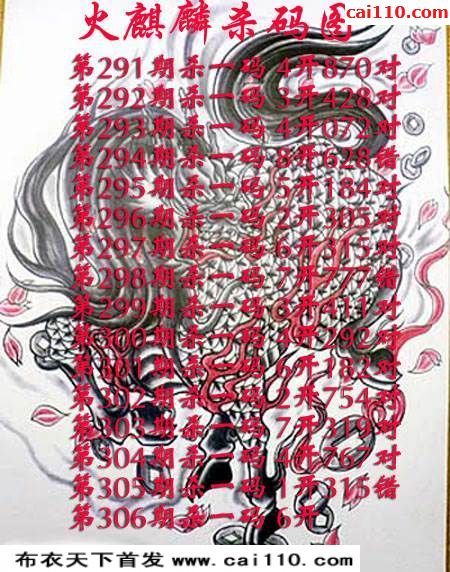 cai110.com
火麒麟杀码图
第291期杀一码 4开870对
第292期杀一码 3开428对
第293期杀一码 4开072对
第294期杀一码 8开628错
第295期杀一码 5开184对
第296期杀一码 2开305对
第297期杀一码 6开315对
第298期杀一码 7开777错
第299期杀一码 3开411对
第300期杀一码 4开292对
第301期杀一码 6开182对
第302期杀一码 2开754对
第303期杀一码 7开319对
第304期杀一码 4开767对
第305期杀一码 1开315错
第306期杀一码 6开
布衣天下首发 www.cai110.com